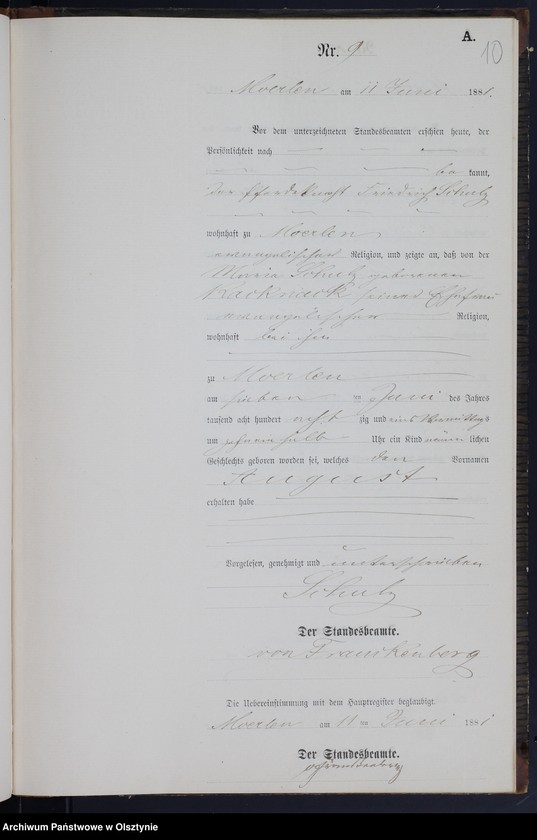 A.
10
Nr. 9
Moerlen am 11 Juni 1881.
Vor dem unterzeichneten Standesbeamten erschien heute, der
Persönlichkeit nach
be kannt,
der Pferdeknecht Friedrich Schulz
wohnhaft zu Moerlen
evangelischer Religion, und zeigte an, daß von der
Maria Schulz geborenen
seiner Ehefrau
evangelischer Religion,
wohnhaft bei ihm
zu Moerlen
am sieben ten Juni des Jahres
tausend acht hundert acht zig und eins Vormittags
um zehneinhalb Uhr ein Kind männ lichen
Geschlechts geboren worden sei, welches den Vornamen
August
erhalten habe
Vorgelesen, genehmigt und unterschrieben
Schulz
Der Standesbeamte.
von Franckenberg
Die Uebereinstimmung mit dem Hauptregister beglaubigt.
Moerlen am 11 ten Juni 1881
Der Standesbeamte.
Archiwum Państwowe w Olsztynie